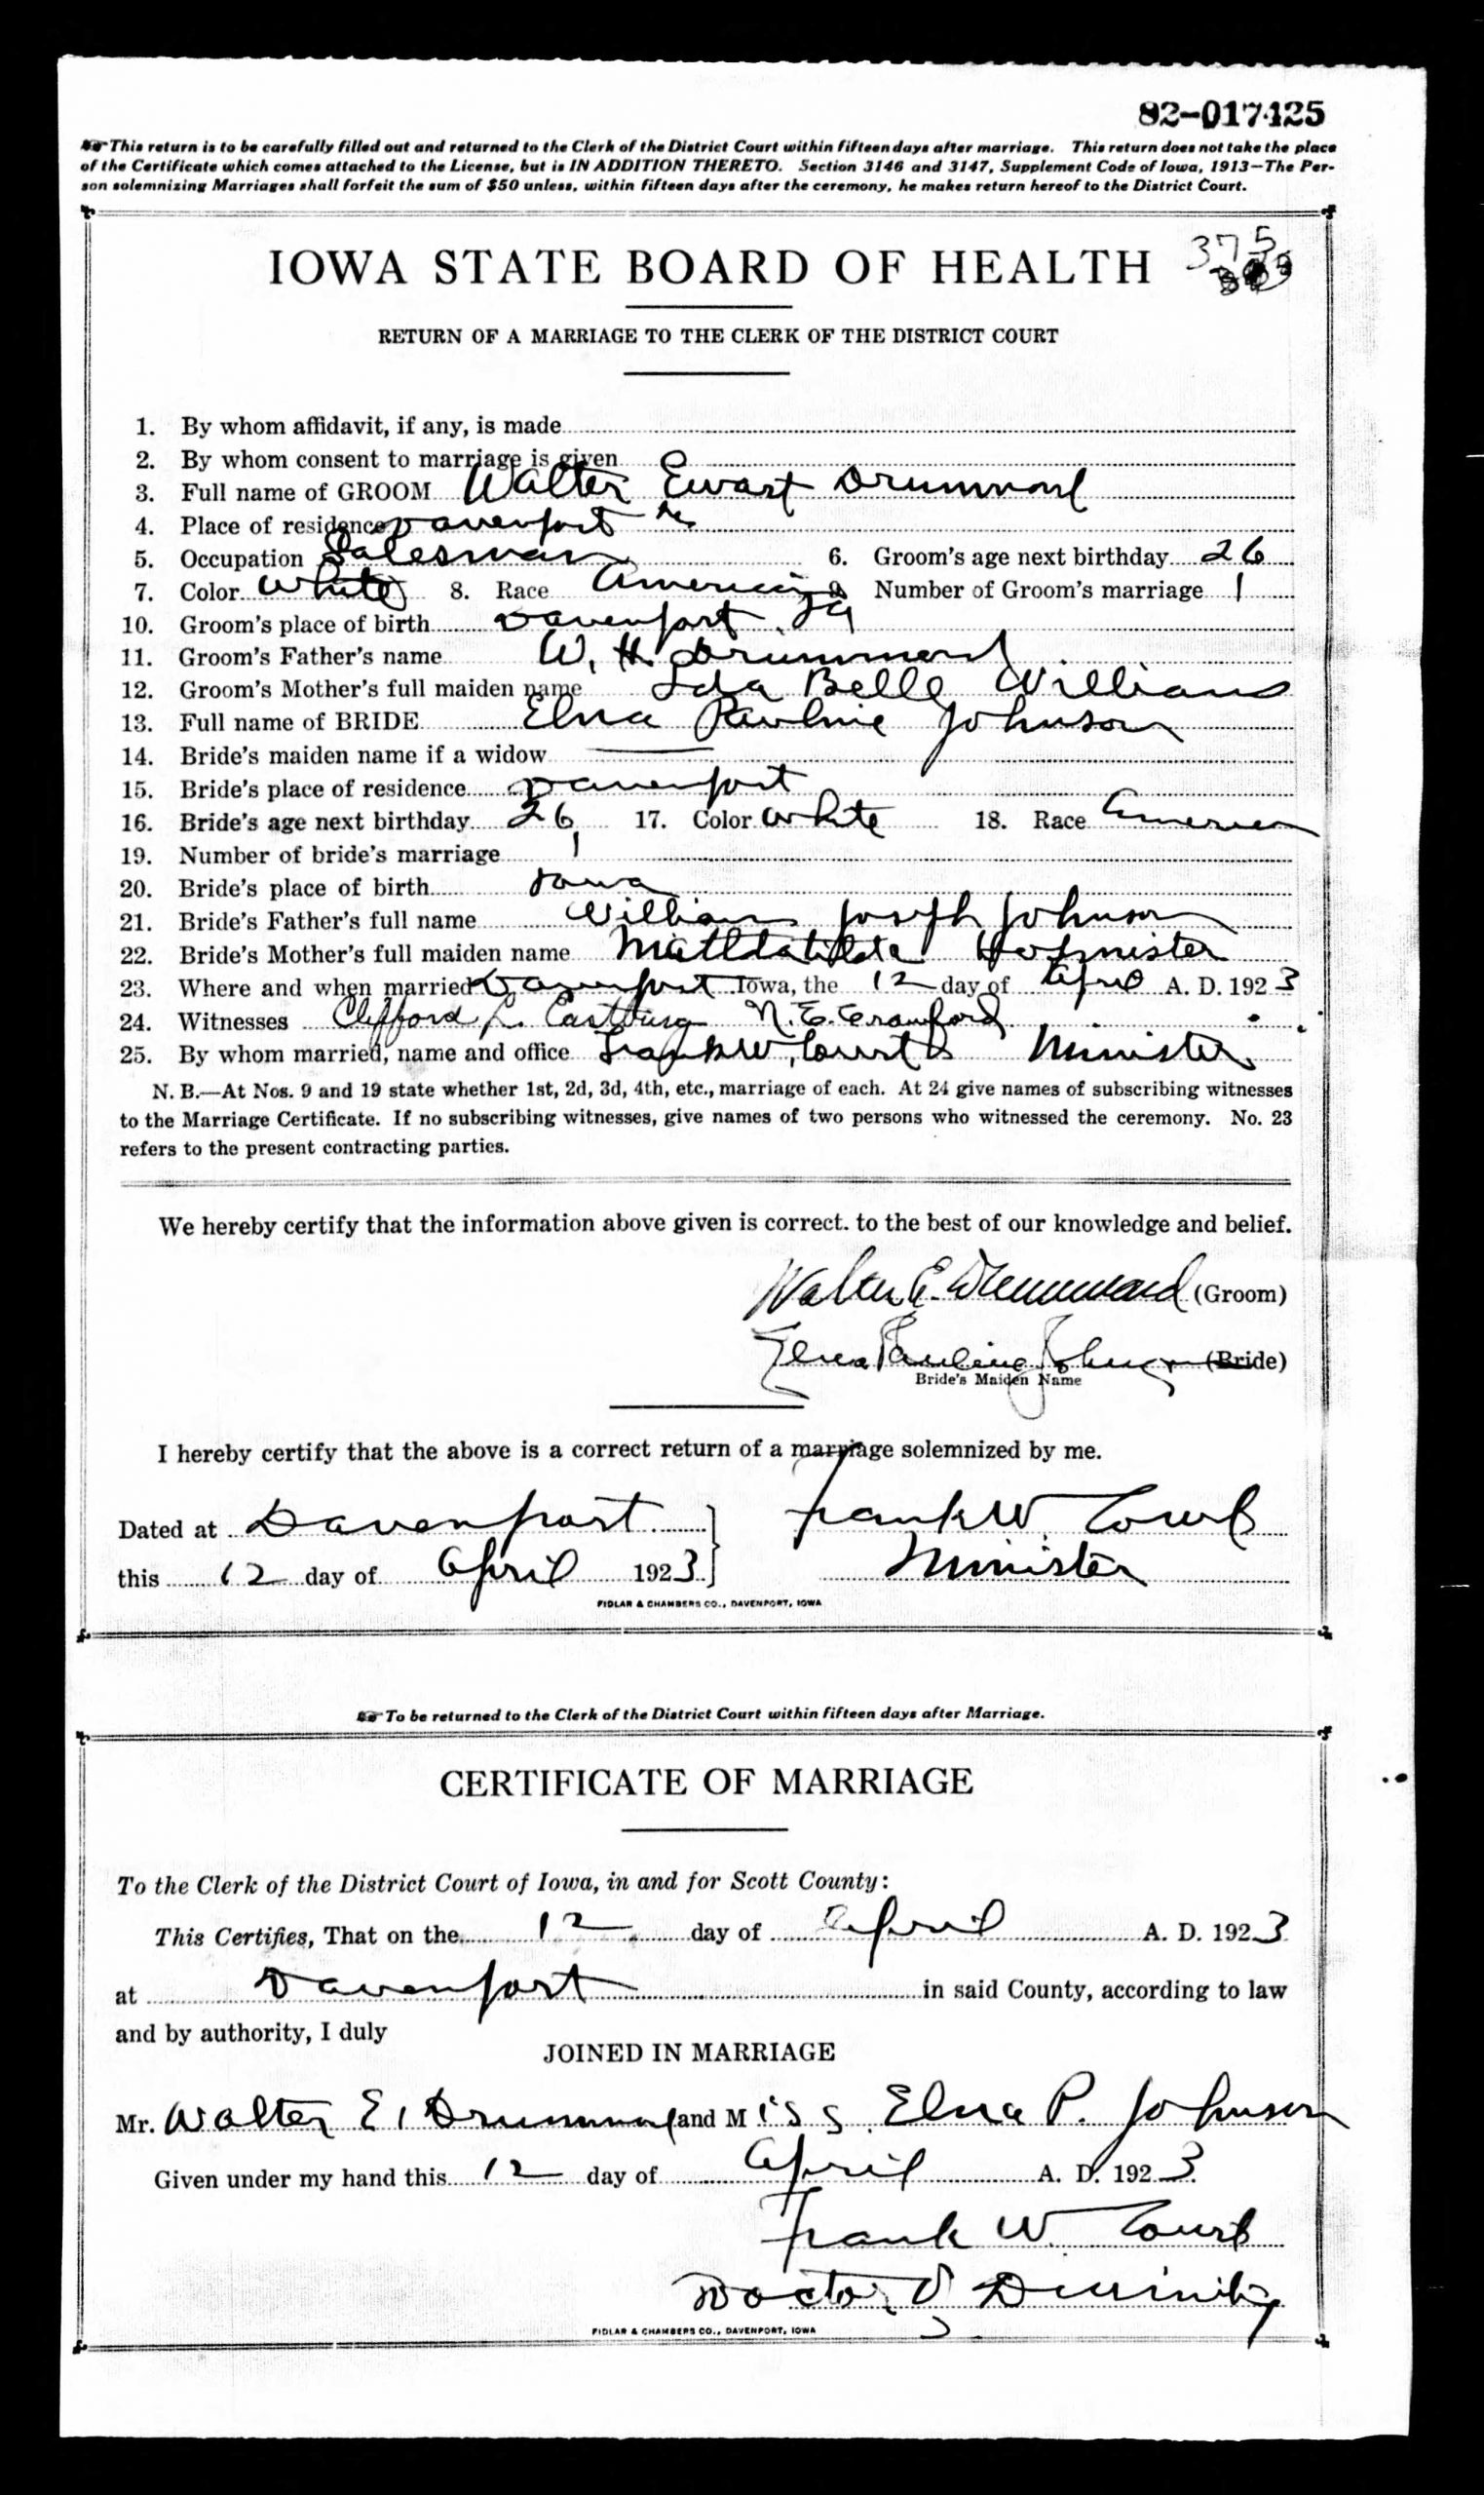 82-017425
This return is to be carefully filled out and returned to the Clerk of the District Court within fifteen days after marriage. This return does not take the place
of the Certificate which comes attached to the License, but is IN ADDITION THERETO. Section 3146 and 3147, Supplement Code of Iowa, 1913—The Per-
son solemnizing Marriages shall forfeit the sum of $50 unless, within fifteen days after the ceremony, he makes return hereof to the District Court.
375
IOWA STATE BOARD OF HEALTH
RETURN OF A MARRIAGE TO THE CLERK OF THE DISTRICT COURT
1. By whom affidavit, if any, is made
2. By whom consent to marriage is given
3. Full name of GROOM Walter Ewart Drummond
4. Place of residence Davenport Ia
5. Occupation Salesman 6. Groom's age next birthday 26
7. Color White 8. Race American 9. Number of Groom's marriage 1
10. Groom's place of birth Davenport, Ia
11. Groom's Father's name W. H. Drummond
12. Groom's Mother's full maiden name Ida Belle Williams
13. Full name of BRIDE Elna Pauline Johnson
14. Bride's maiden name if a widow
15. Bride's place of residence Davenport
16. Bride's age next birthday 26 17. Color White 18. Race American
19. Number of bride's marriage 1
20. Bride's place of birth Iowa
21. Bride's Father's full name William Joseph Johnson
22. Bride's Mother's full maiden name Hofmister
23. Where and when married Davenport Iowa, the 12 day of April A. D. 1923
24. Witnesses Clifford L. N. E. Crawford
25. By whom married, name and office Frank W. Court Minister
N. B.—At Nos. 9 and 19 state whether 1st, 2d, 3d, 4th, etc., marriage of each. At 24 give names of subscribing witnesses
to the Marriage Certificate. If no subscribing witnesses, give names of two persons who witnessed the ceremony. No. 23
refers to the present contracting parties.
We hereby certify that the information above given is correct. to the best of our knowledge and belief.
Walter E. Drummond (Groom)
Elna Pauline Johnson (Bride)
Bride's Maiden Name
I hereby certify that the above is a correct return of a marriage solemnized by me.
Dated at Davenport Frank W. Court
this 12 day of April 1923 Minister
FIDLAR & CHAMBERS CO., DAVENPORT, IOWA
To be returned to the Clerk of the District Court within fifteen days after Marriage.
CERTIFICATE OF MARRIAGE
To the Clerk of the District Court of Iowa, in and for Scott County:
This Certifies, That on the 12 day of April A. D. 1923
at Davenport in said County, according to law
and by authority, I duly
JOINED IN MARRIAGE
Mr. Walter E. Drummond and Miss Elna P. Johnson
Given under my hand this 12 day of April A. D. 1923
Frank W. Court
Doctor of Divinity
FIDLAR & CHAMBERS CO., DAVENPORT, IOWA